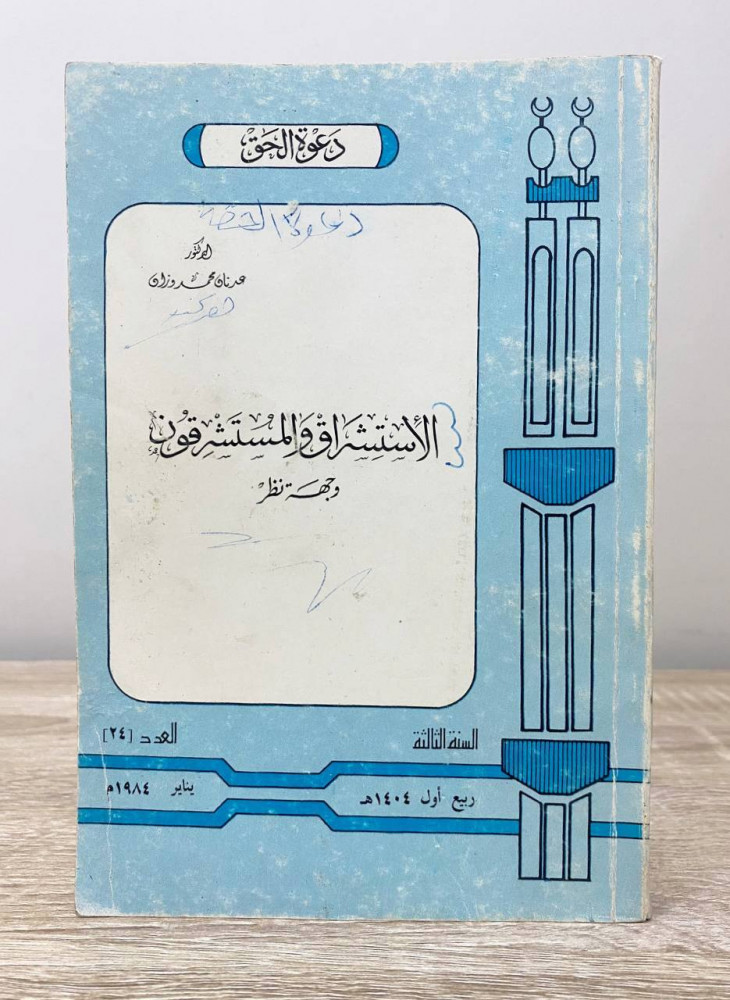 دعوة الحق
الدكتور
عدنان محمد وزان
الاستشراق والمستشرقون
وجهة نظر
السنة الثالثة
العدد [٢٤]
ربيع أول ١٤٠٤هـ
يناير ١٩٨٤م